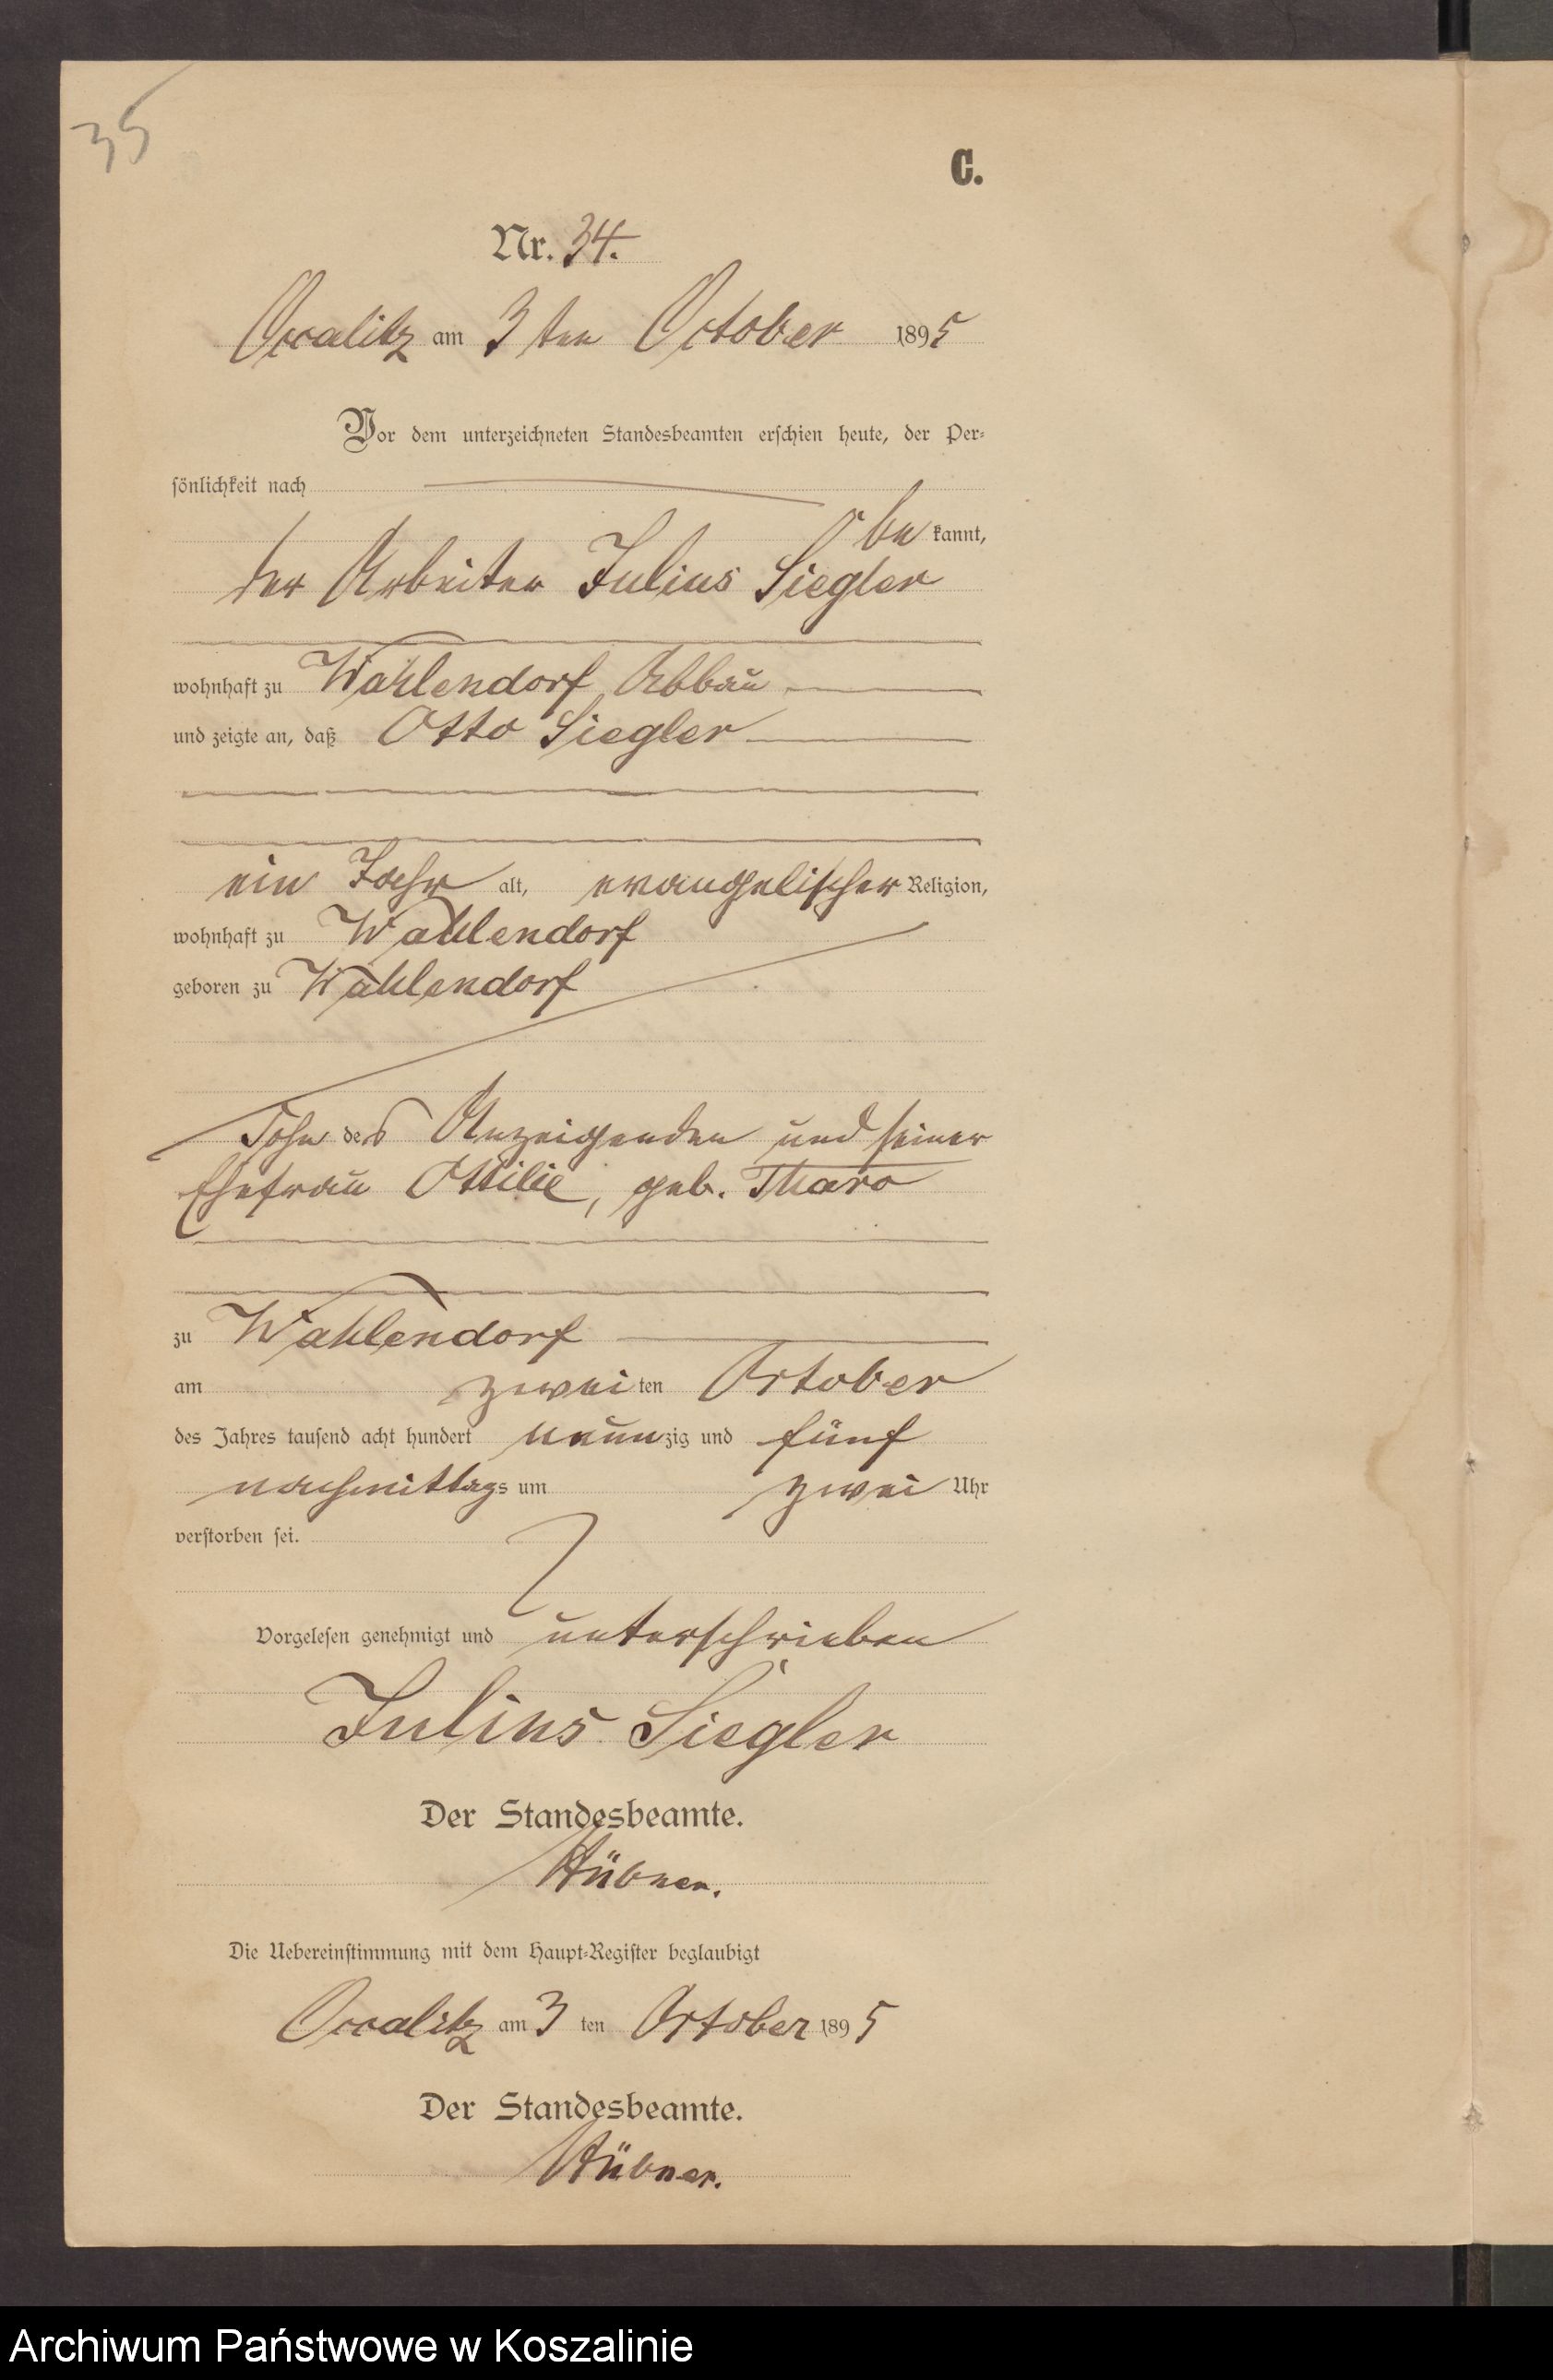 35
C.
Nr. 34.
Occalitz am 3 ten October 1895
Vor dem unterzeichneten Standesbeamten erschien heute, der Per-
sönlichkeit nach
be kannt,
der Arbeiter Julius Siegler
wohnhaft zu Wahlendorf Abbau
und zeigte an, daß Otto Siegler
ein Jahr alt, evangelischer Religion,
wohnhaft zu Wahlendorf
geboren zu Wahlendorf
Sohn des Anzeigenden und seiner
Ehefrau Ottilie, geb. Tharo
zu Wahlendorf
am zwei ten October
des Jahres tausend acht hundert neunzig und fünf
nachmittags um zwei Uhr
verstorben sei.
Vorgelesen genehmigt und unterschrieben
Julius Siegler
Der Standesbeamte.
Hübner.
Die Uebereinstimmung mit dem Haupt-Register beglaubigt
Occalitz am 3 ten October 1895
Der Standesbeamte.
Hübner.
Archiwum Państwowe w Koszalinie